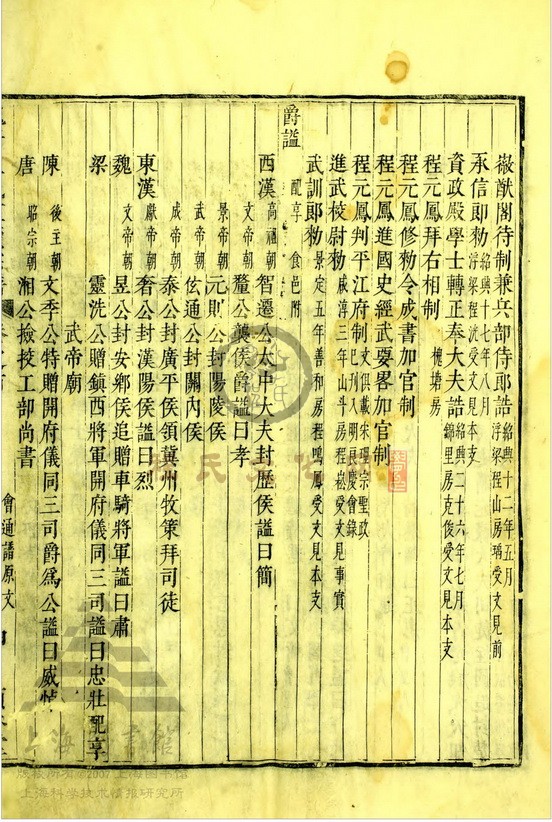 徽猷閣待制兼兵部侍郎誥 紹興十二年五月 浮梁程山房瑀受文見前
承信郎勅 紹興十七年八月 浮梁程沈受文見本支
資政殿學士轉正奉大夫誥 紹興二十六年七月 錦里房克俊受文見本支
程元鳳拜右相制 槐塘房
程元鳳修勅令成書加官制
程元鳳進國史經武要畧加官制
程元鳳判平江府制 文俱載宋理宗聖政 已刋入明良慶會錄
進武校尉勅 咸淳三年山斗房程崧受文見事實
武訓郎勅 景定五年善和房程鳴鳳受文見本支
爵謚 配享 食邑附
西漢 高祖朝 智遷公太中大夫封歷侯謚曰簡
文帝朝 釐公襲侯爵謚曰孝
景帝朝 元則公封陽陵侯
武帝朝 佐通公封關內侯
成帝朝 泰公封廣平侯領冀州牧策拜司徒
東漢 獻帝朝 喬公封漢陽侯謚曰烈
魏 文帝朝 昱公封安鄉侯追贈車騎將軍謚曰肅
梁 靈洗公贈鎮西將軍開府儀同三司謚曰忠壯配享
武帝廟
陳 後主朝 文季公特贈開府儀同三司爵為公謚曰威悼
唐 昭宗朝 湘公檢挍工部尚書
會通譜原文
上海圖書館
版權所有©2007上海圖書館
上海科學技術情報研究所